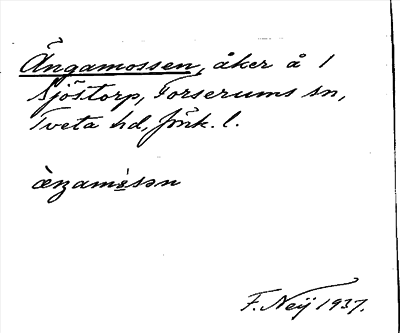 Ängamossen, åker å 1
Sjöstorp, Forserums sn,
Tveta hd, Jönk. l.
ænamåsən
F. Neij 1937.